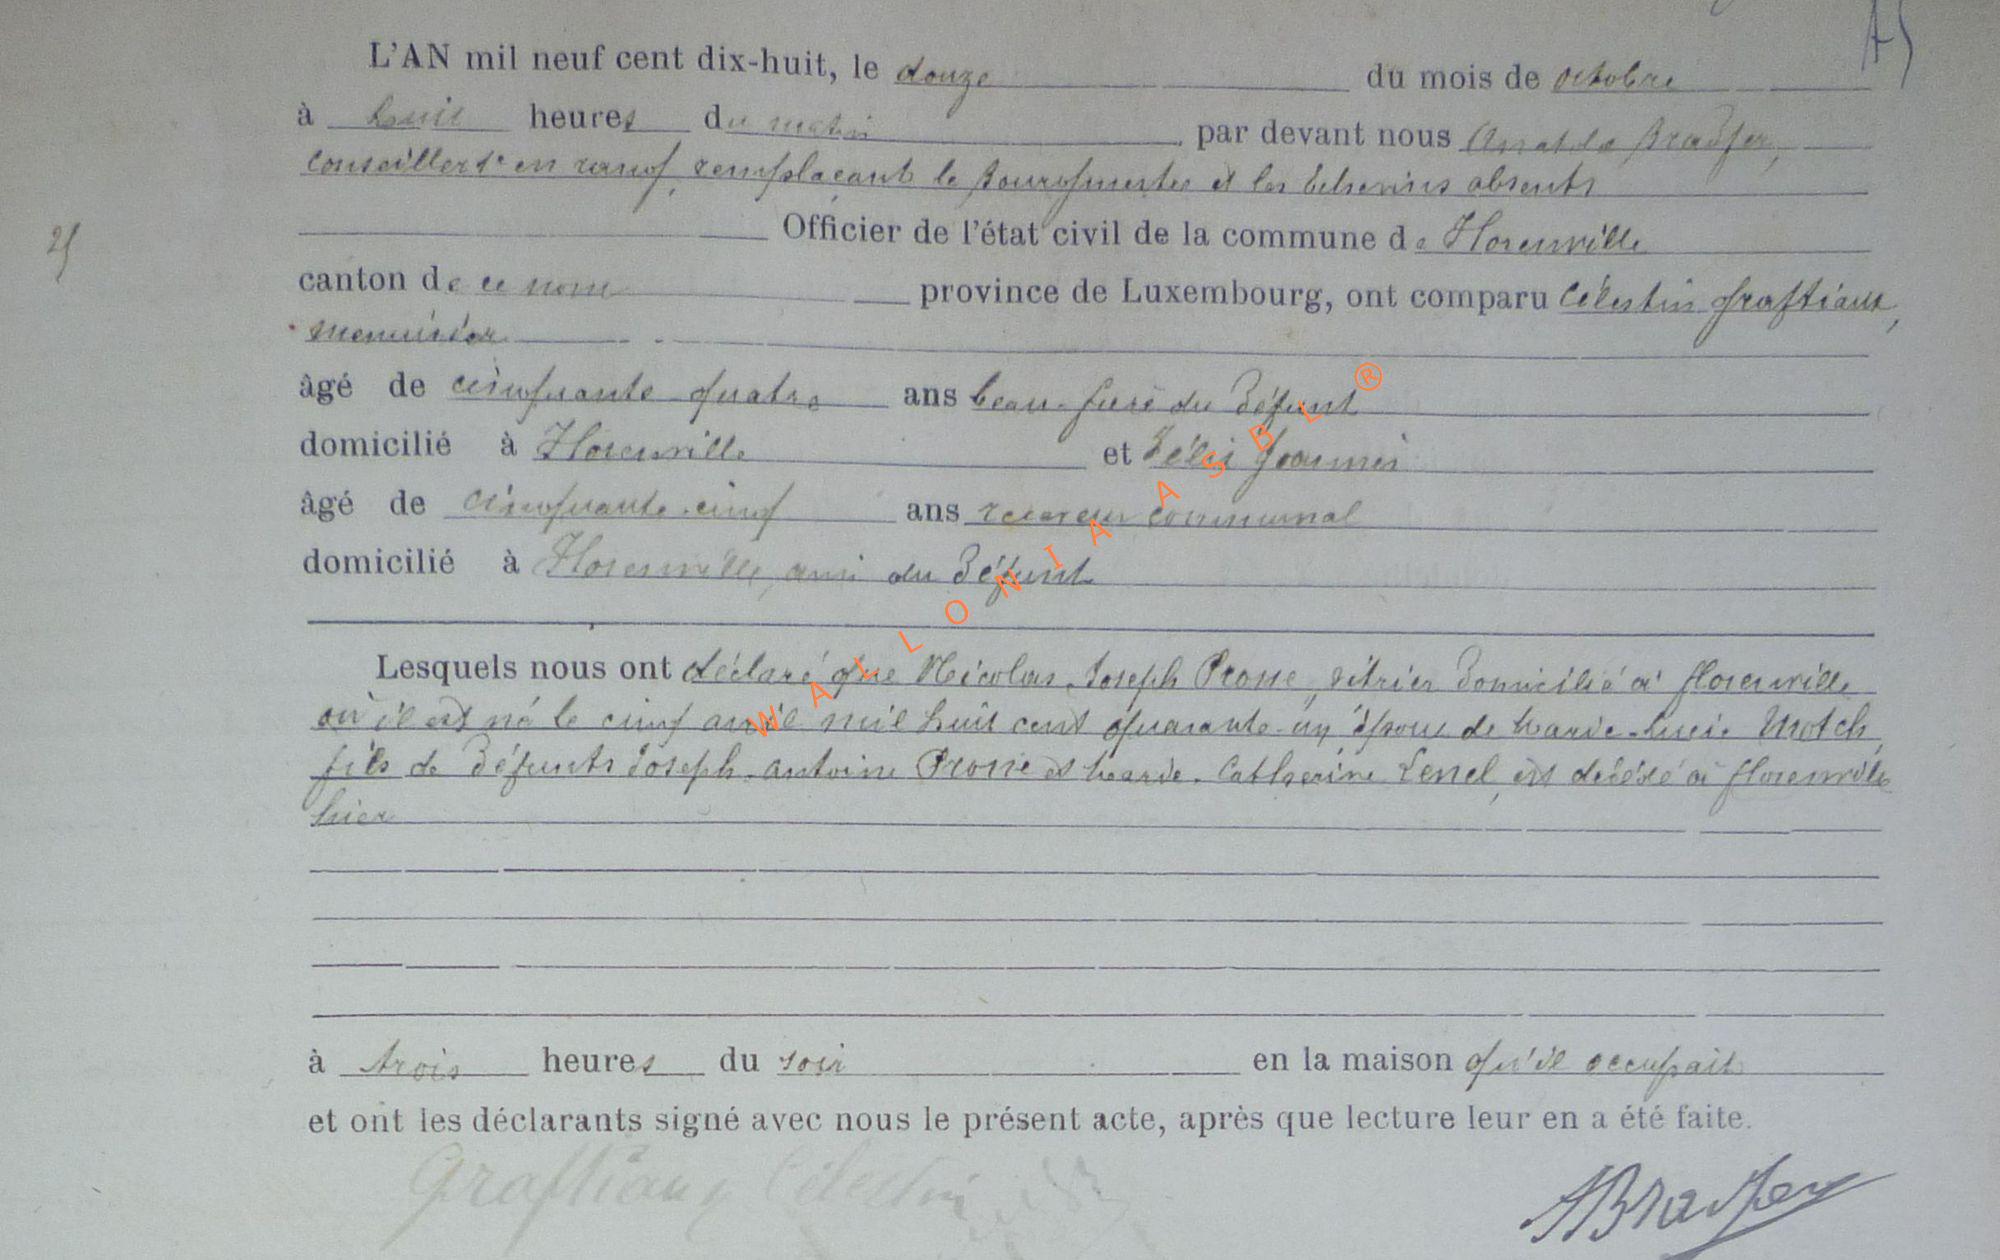 L'AN mil neuf cent dix-huit, le douze du mois de octobre
à huit heures du matin par devant nous Anatole Bradfer,
Conseiller 1er en rang, remplaçant le Bourgmestre et les Echevins absents
Officier de l'état civil de la commune de Florenville
25
canton de ce nom province de Luxembourg, ont comparu Célestin Graftiaux,
menuisier
âgé de cinquante quatre ans beau-frère du défunt
domicilié à Florenville et Félix
âgé de cinquante-cinq ans receveur communal
domicilié à Florenville, ami du défunt
WALLONIA ASBL ®
Lesquels nous ont déclaré que Nicolas Joseph Prosse, vitrier domicilié à Florenville
où il est né le cinq avril mil huit cent quarante-un époux de Marie-Lucie
fils de défunts Joseph-Antoine Prosse et Marie-Catherine est décédé à Florenville
hier
à trois heures du soir en la maison qu'il occupait
et ont les déclarants signé avec nous le présent acte, après que lecture leur en a été faite.
Graftiaux Célestin
ABradfer